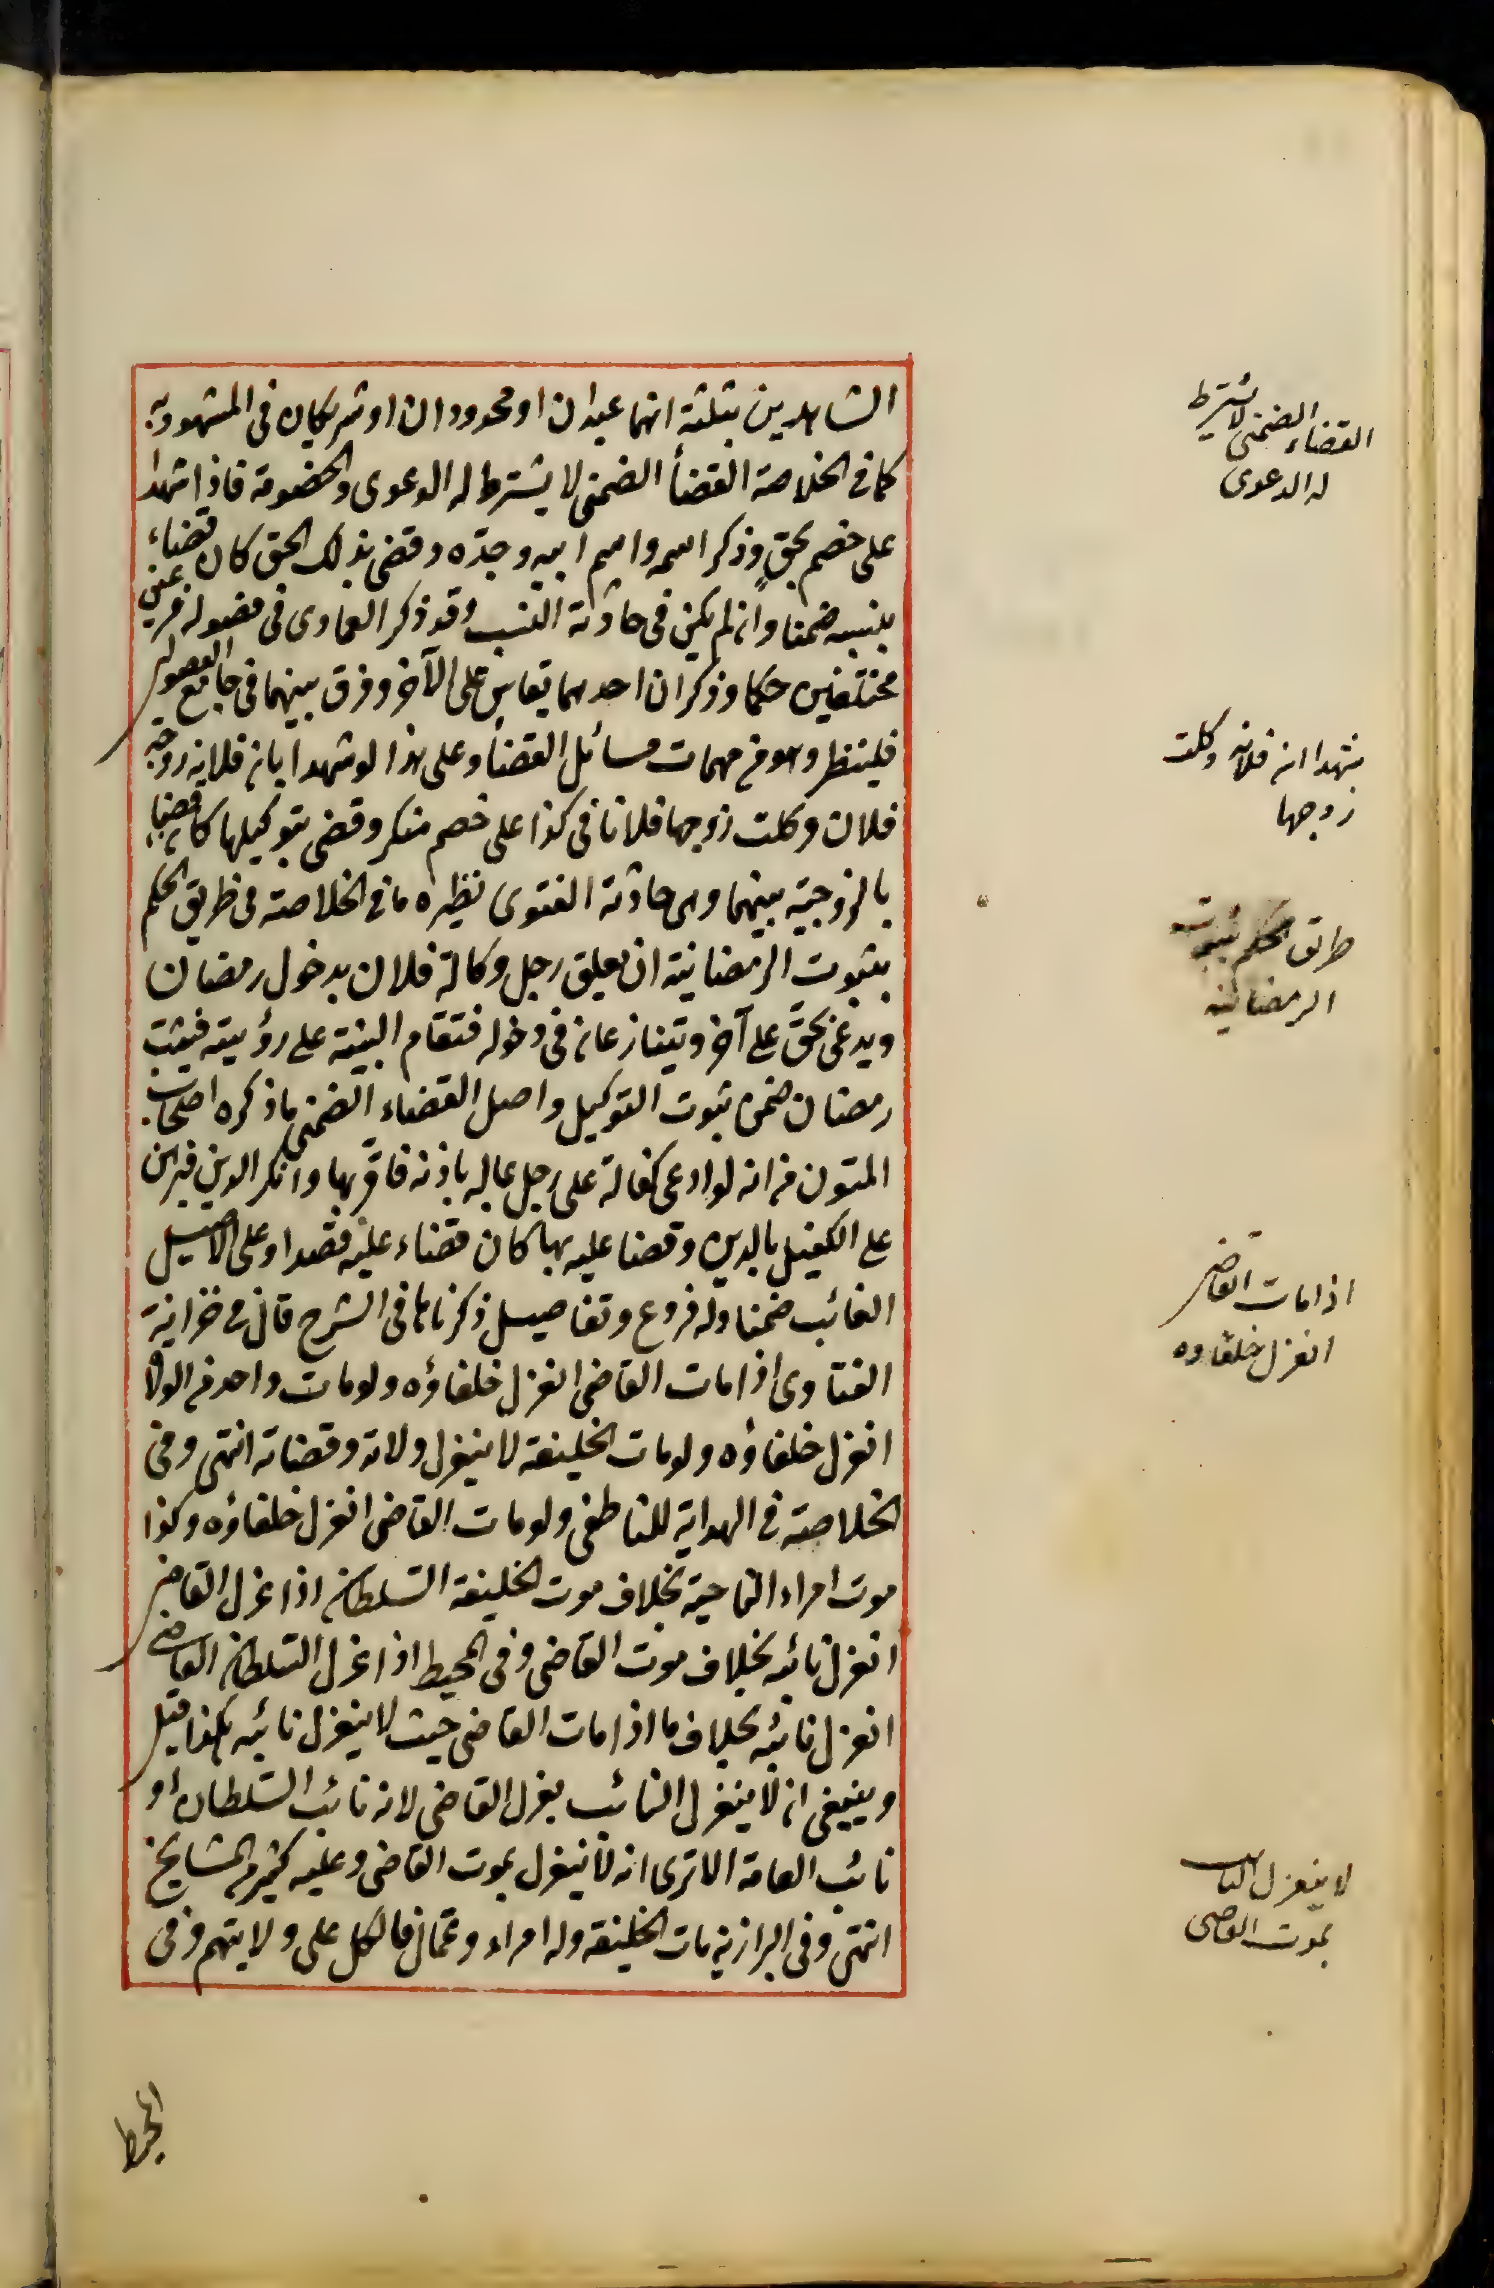 الشاهدين بثلثة انهما عبدان او محدودان او شريكان فى المشهود به
كما فى الخلاصة القضأ الضمنى لا يشترط له الدعوى والخصومة فاذا شهدا
على خصم بحقٍ وذكر اسمه واسم ابيه وجدّه وقضى بذلك الحق كان قضاء
بنسبه ضمنا وان لم يكن فى حادثة النسب وقد ذكر العمادى فى فصوله فرعين
مختلفين حكما وذكر ان احدهما يقاس على الآخر وفرق بينهما فى جامع الفصولين
فلينظر وهو من مهمات مسائل القضأ وعلى هذا لو شهدا بان فلانه زوجة
فلان وكلت زوجها فلانا فى كذا على خصم منكر وقضى بتوكيلها كان قضاء
بالزوجية بينهما وهى حادثة الفتوى نظيره ما فى الخلاصة فى طريق الحكم
بثبوت الرمضانية ان يعلق رجل وكالة فلان بدخول رمضان
ويدعى بحق على آخر ويتنازعان فى دخوله فتقام البينة على رؤيته فيثبت
رمضان ضمن ثبوت التوكيل واصل القضاء الضمنى ما ذكره اصحاب
المتون من انه لو ادعى كفالة على رجل بماله باذنه فاقر بها وانكر الدين فبرهن
على الكفيل بالدين وقضا عليه بها كان قضاء عليه قصدا وعلى الاصيل
الغائب ضمنا وله فروع وتفاصيل ذكرناها فى الشرح قال فى خزانة
الفتاوى اذا مات القاضى انعزل خلفاؤه ولو مات واحد من الولاة
انعزل خلفاؤه ولو مات الخليفة لا ينعزل ولاته وقضاته انتهى وفى
الخلاصة فى الهداية للناطفى ولو مات القاضى انعزل خلفاؤه وكذا
موت امراء الناحية بخلاف موت الخليفة السلطان اذا عزل القاضى
انعزل نائبه بخلاف موت القاضى وفى المحيط اذا عزل السلطان القاضى
انعزل نائبه بخلاف ما اذا مات القاضى حيث لا ينعزل نائبه هكذا قيل
وينبغى ان لا ينعزل النائب بعزل القاضى لانه نائب السلطان او
نائب العامة الا ترى انه لا ينعزل بموت القاضى وعليه كثير من المشايخ
انتهى وفى البزازية مات الخليفة وله امراء وعمال فالكل على ولايتهم وفى
المحيط
القضاء الضمنى لا يشترط
له الدعوى
شهدا ان فلانه وكلت
زوجها
طريق الحكم بثبوت
الرمضانية
اذا مات القاضى
انعزل خلفاوه
لا ينعزل النائب
بموت القاضى